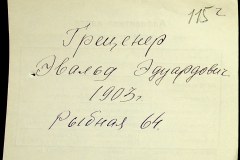 115г
Греценер
Эвальд Эдуардович
1903г.
Рыбная 64.